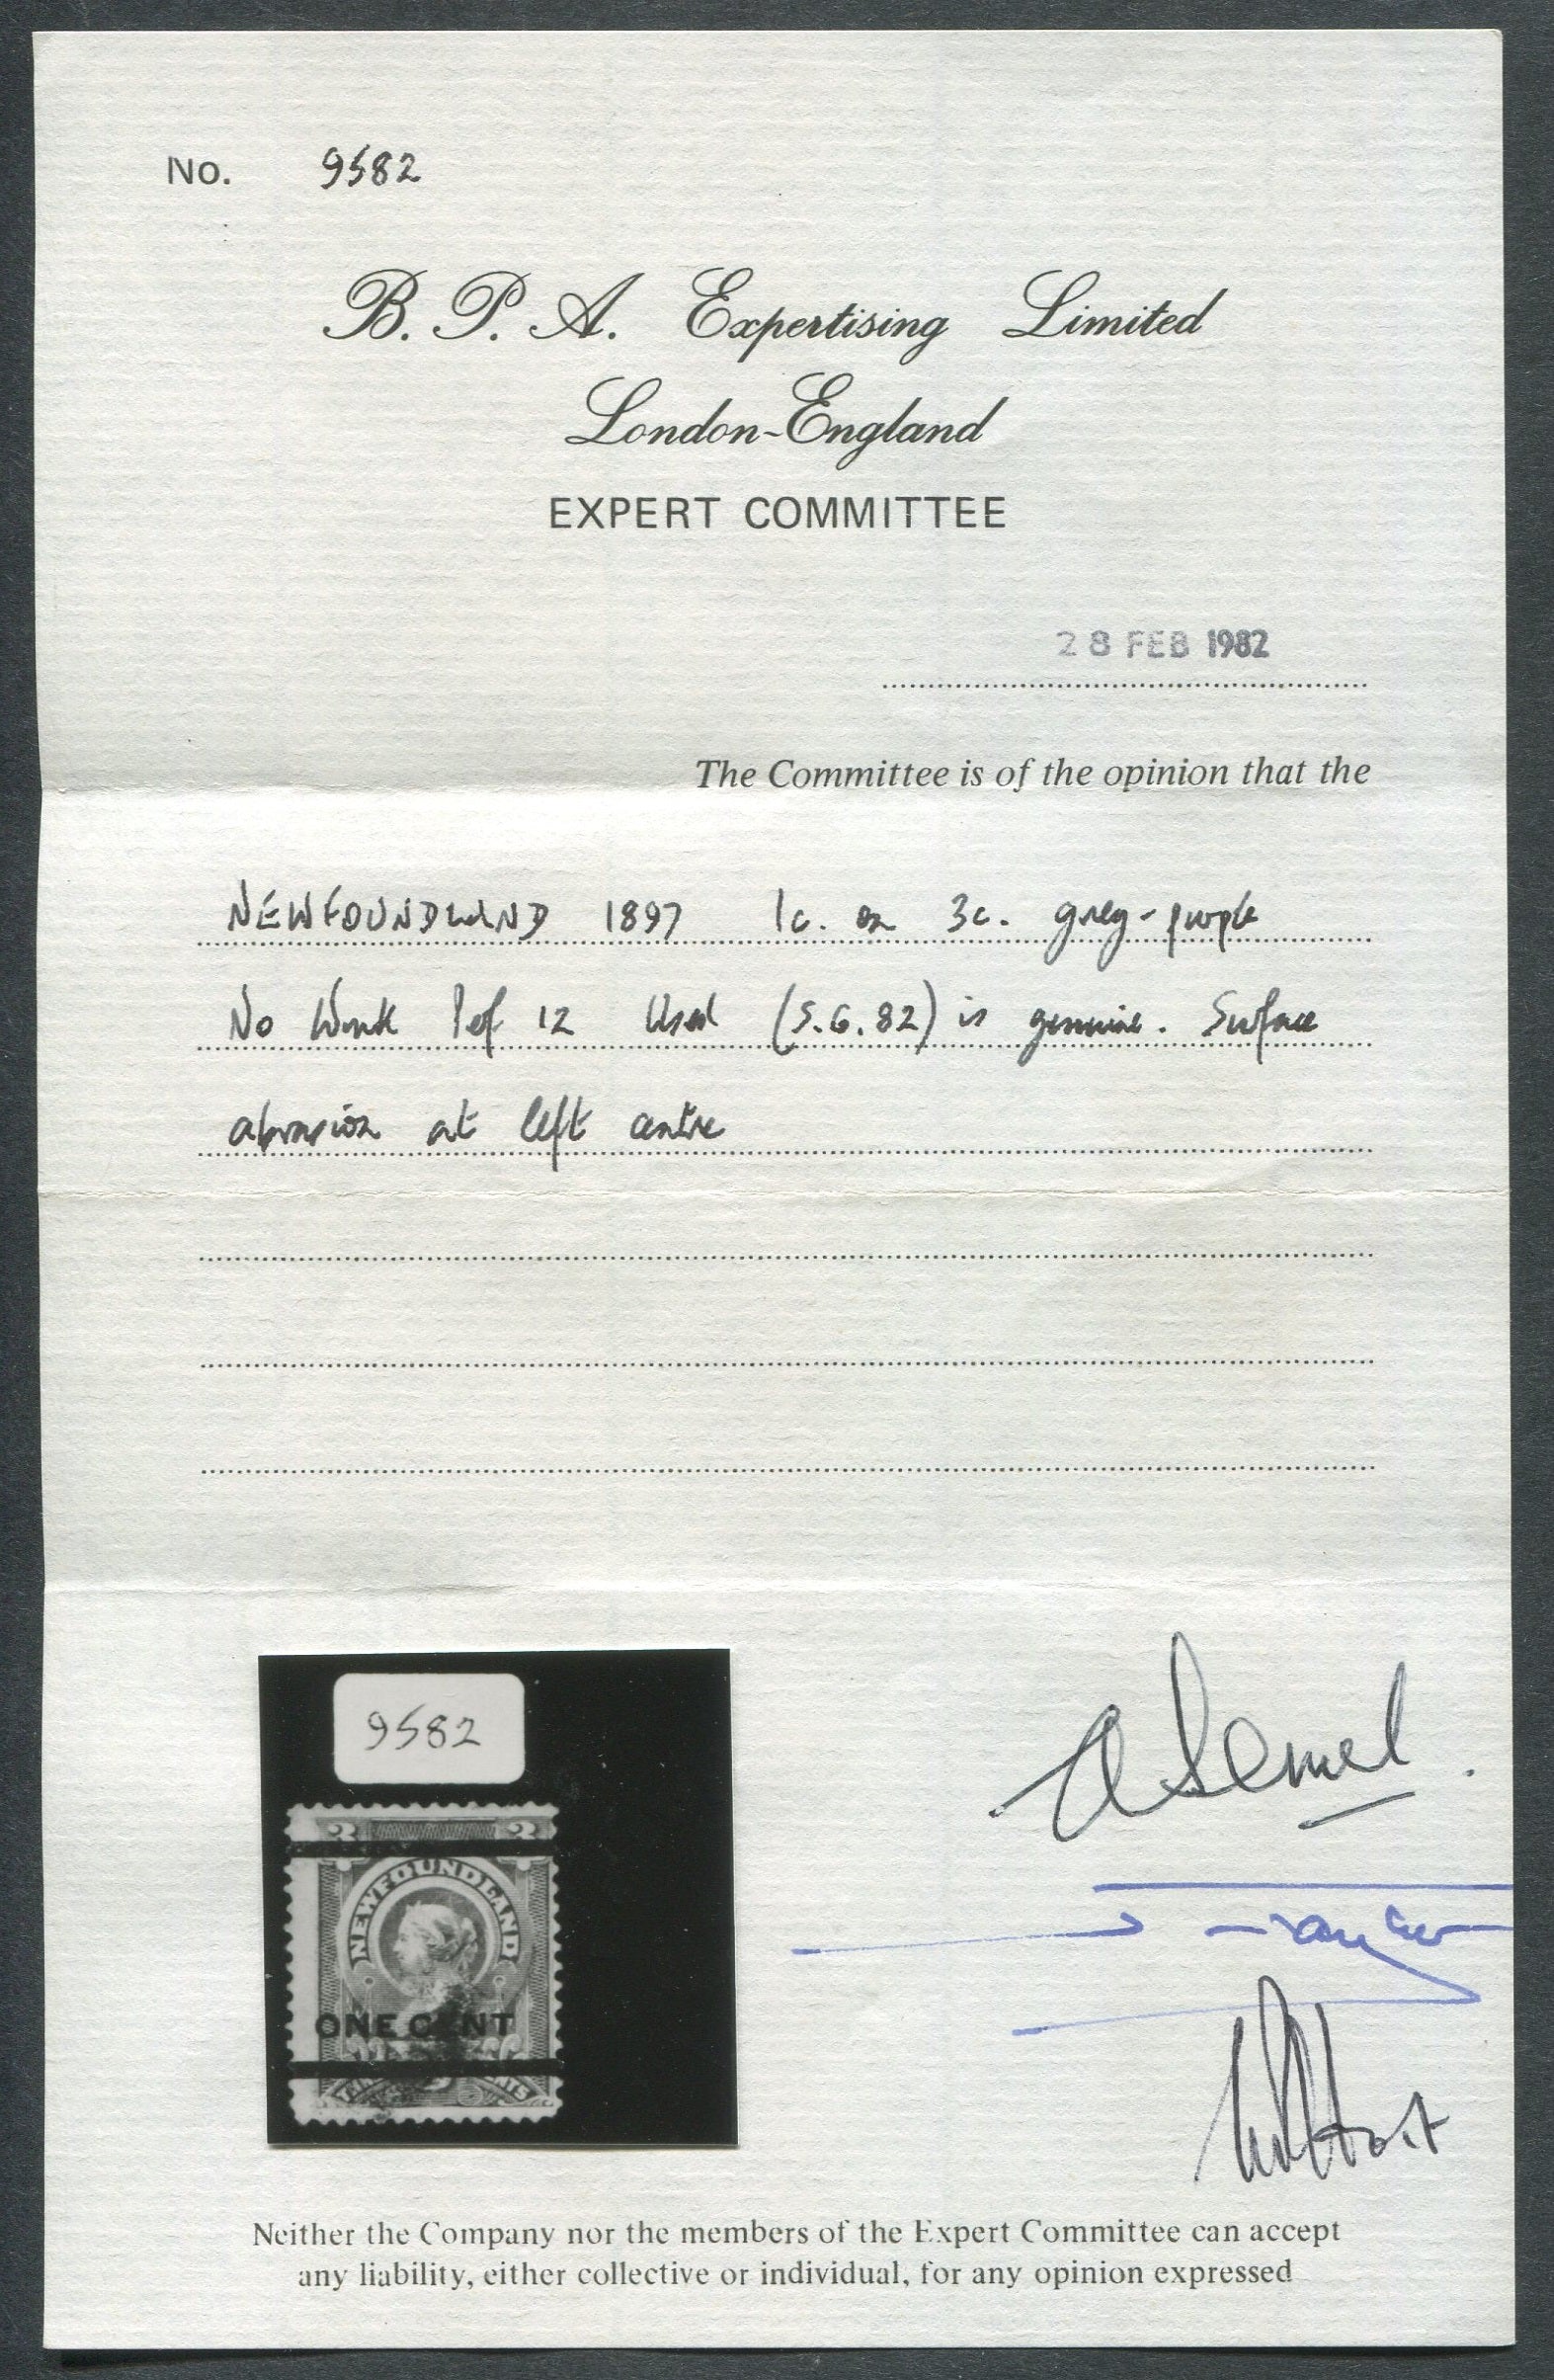 No. 9582
B. P. A. Expertising Limited
London-England
EXPERT COMMITTEE
28 FEB 1982
The Committee is of the opinion that the
NEWFOUNDLAND 1897 1c. on 3c. grey-purple
No Wmk Perf 12 Used (S.G.82) is genuine. Surface
abrasion at left centre
9582
3 3
NEWFOUNDLAND
ONE CENT
Neither the Company nor the members of the Expert Committee can accept
any liability, either collective or individual, for any opinion expressed